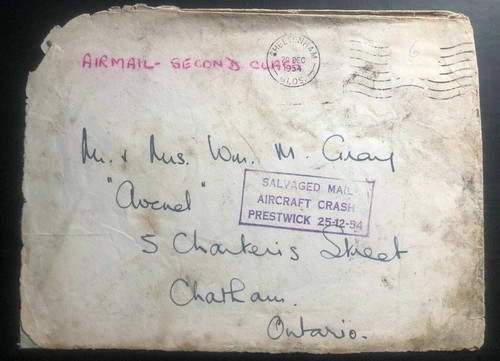 AIRMAIL - SECOND CLASS
CHELTENHAM
20 DEC
1954
GLOS.
Mr. & Mrs. Wm. M. Gray
"Avenel"
SALVAGED MAIL
AIRCRAFT CRASH
PRESTWICK 25-12-54
5 Charteris Street
Chatham.
Ontario.